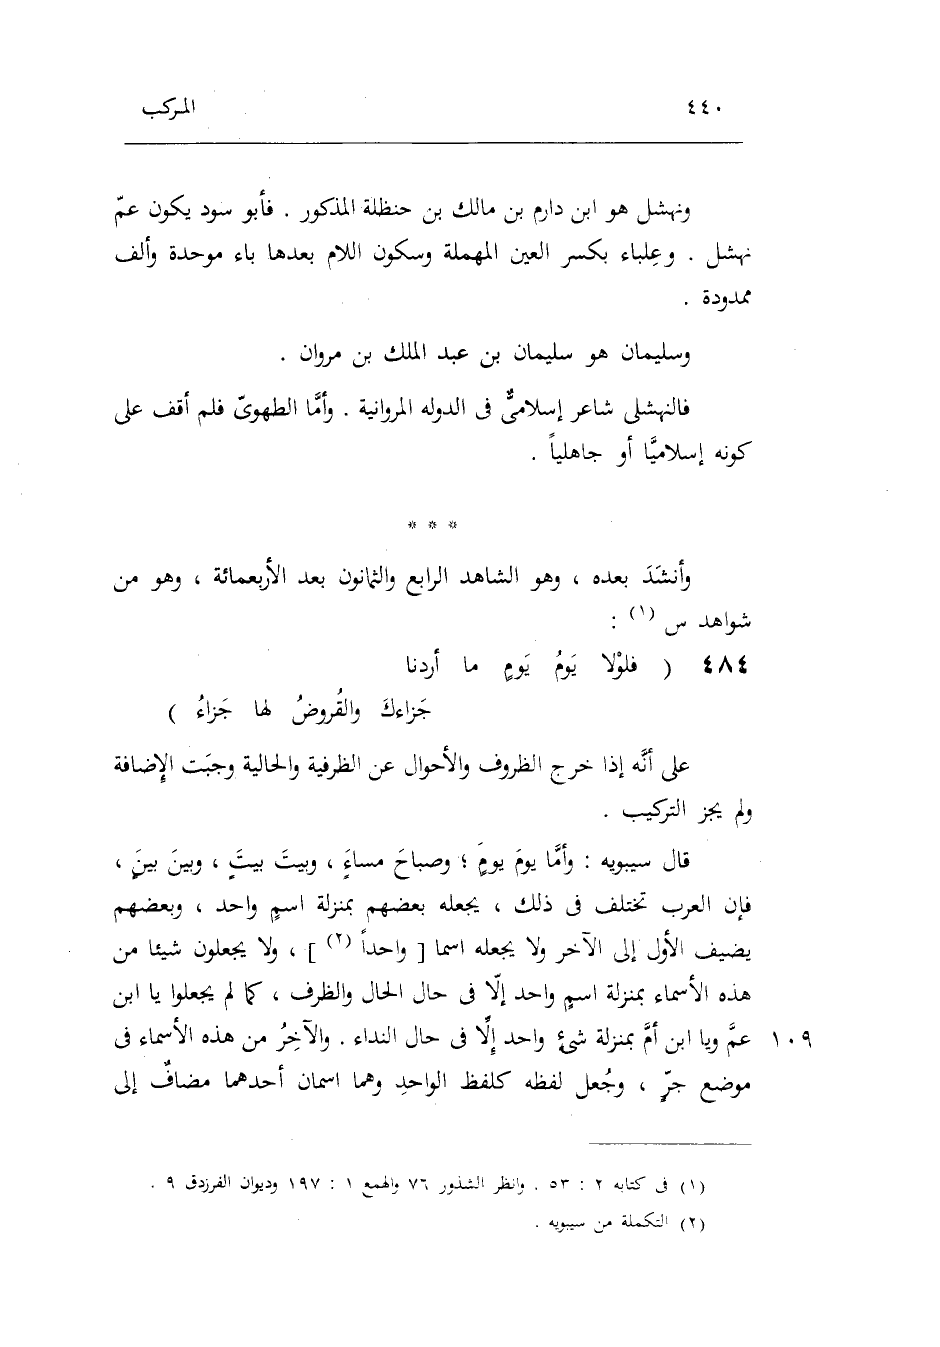 ٤٤٠ المركب
ونهشل هو ابن دارم بن مالك بن حنظلة المذكور . فأبو سود يكون عمّ
نهشل . وعِلباء بكسر العين المهملة وسكون اللام بعدها باء موحدة وألف
ممدودة .
وسليمان هو سليمان بن عبد الملك بن مروان .
فالنهشلى شاعر إسلاميٌّ فى الدوله المروانية . وأمَّا الطهوىّ فلم أقف على
كونه إسلاميًّا أو جاهلياً .
* * *
وأنشَدَ بعده ، وهو الشاهد الرابع والثمانون بعد الأربعمائة ، وهو من
شواهد س (١) :
٤٨٤ ( فلوْلا يَومُ يَومٍ ما أردنا
جَزاءكَ والقُروضُ لها جَزاءُ )
على أنَّه إذا خرج الظروف والأحوال عن الظرفية والحالية وجبَت الإضافة
ولم يجز التركيب .
قال سيبويه : وأمَّا يومَ يومَ ؛ وصباحَ مساءَ ، وبيتَ بيتَ ، وبينَ بينَ ،
فإن العرب تختلف فى ذلك ، يجعله بعضهم بمنزلة اسمٍ واحد ، وبعضهم
يضيف الأول إلى الآخر ولا يجعله اسما [ واحداً (٢) ] ، ولا يجعلون شيئا من
هذه الأسماء بمنزلة اسمٍ واحد إلّا فى حال الحال والظرف ، كما لم يجعلوا يا ابن
عمَّ ويا ابن أمَّ بمنزلة شئٍ واحد إلّا فى حال النداء . والآخِرُ من هذه الأسماء فى ١٠٩
موضع جرٍّ ، وجُعل لفظه كلفظ الواحدِ وهما اسمان أحدهما مضافٌ إلى
(١) فى كتابه ٢ : ٥٣ . وانظر الشذور ٧٦ والهمع ١ : ١٩٧ وديوان الفرزدق ٩ .
(٢) التكملة من سيبويه .